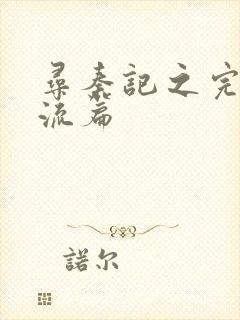 尋秦記之完
流篇
諾尔